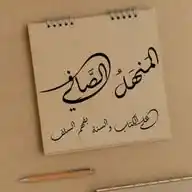 المنهلُ
الصَّافي
على الكتاب والسنة بفهم السلف